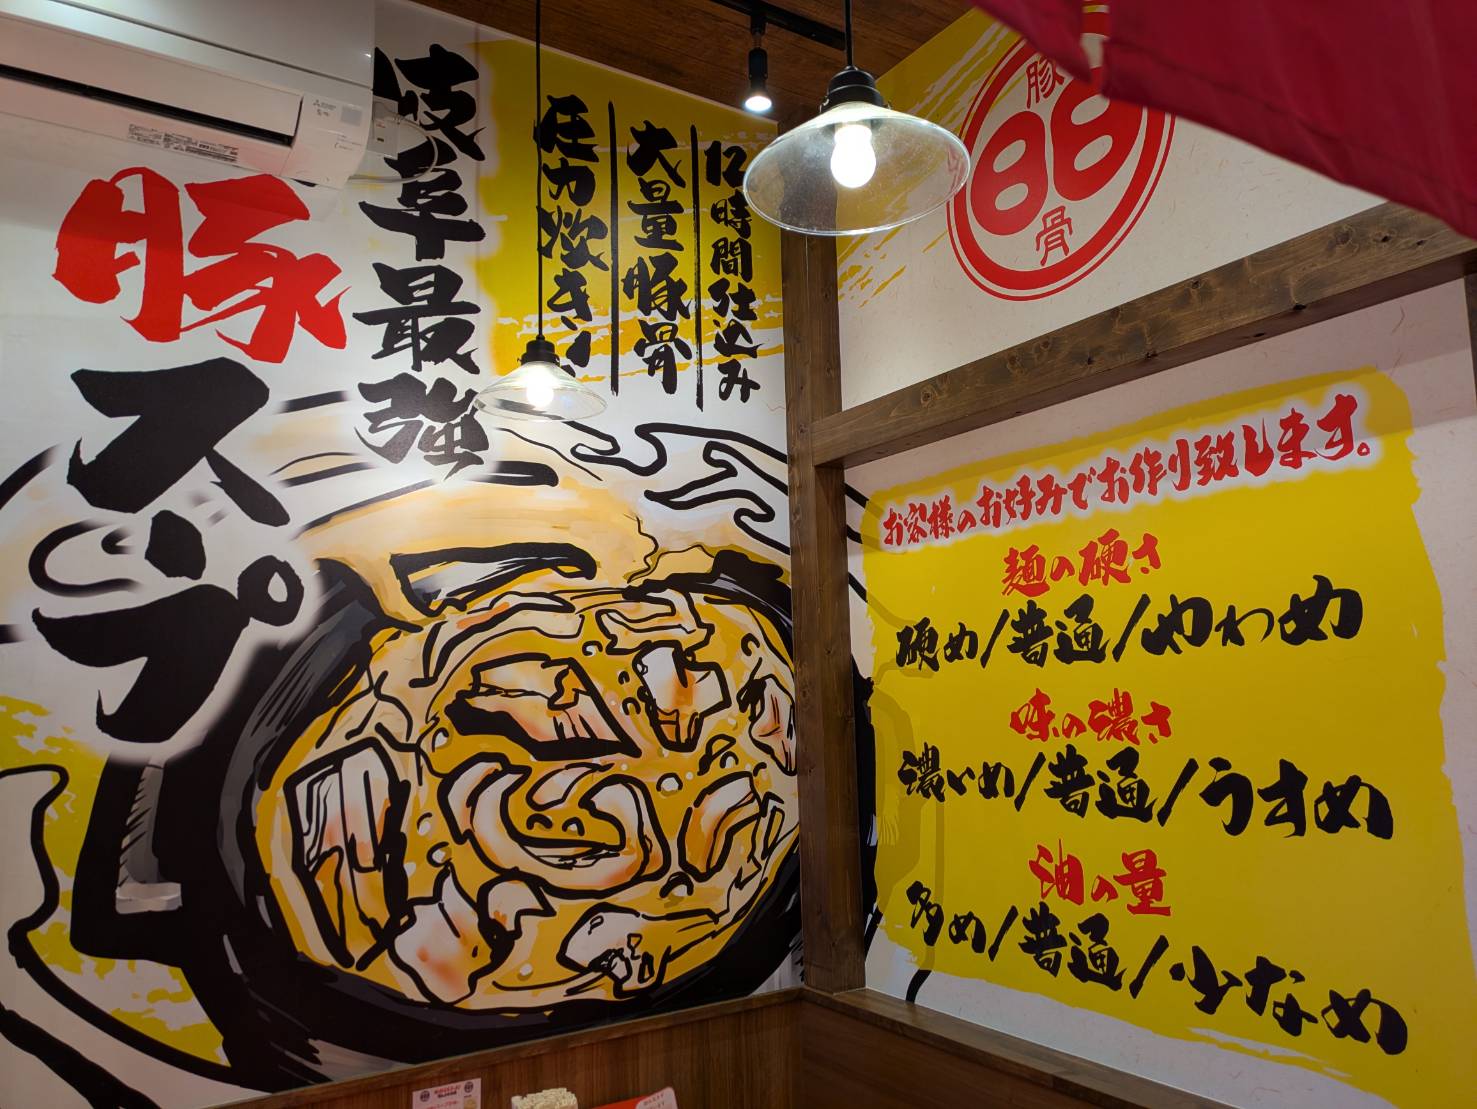 岐阜最強
豚スープ
12時間仕込み
大量豚骨
圧力炊き
豚
88
骨
お客様のお好みでお作り致します。
麺の硬さ
硬め/普通/やわめ
味の濃さ
濃いめ/普通/うすめ
油の量
多め/普通/少なめ